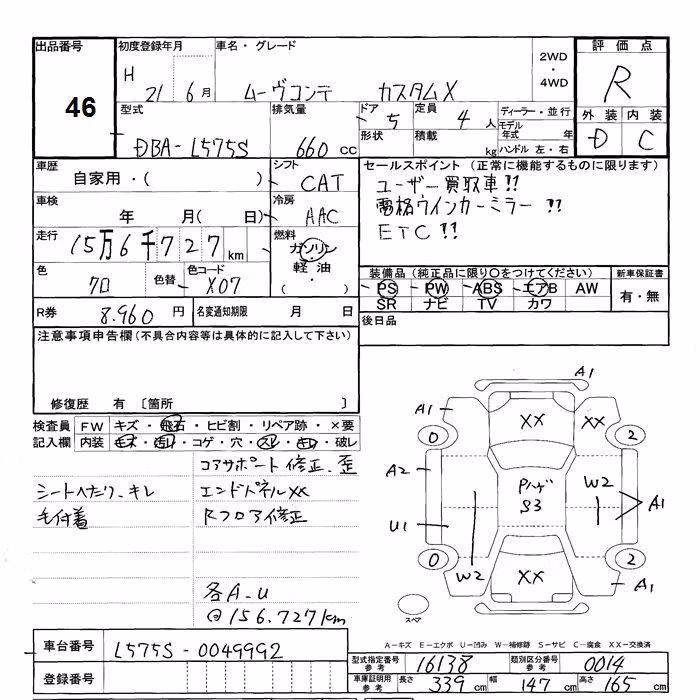 出品番号
46
初度登録年月
H 21 6月
車名・グレード
ムーヴコンテ カスタムX
2WD
・
4WD
評価点
R
型式
DBA-L575S
排気量
660 cc
ドア
5
形状
定員
4 人
積載
kg
ディーラー・並行
モデル年式 年
ハンドル 左・右
外装 内装
D C
車歴
自家用・( )
シフト
CAT
車検
年 月( 日)
冷房
AAC
走行
15万6千727km
燃料
ガソリン
軽油
( )
色
クロ
色替
色コード
X07
R券
8.960 円
名変通知期限
月 日
セールスポイント(正常に機能するものに限ります)
ユーザー買取車!!
電格ウインカーミラー!!
ETC!!
装備品(純正品に限り○をつけてください)
PS PW ABS エアB AW
SR ナビ TV カワ
新車保証書
有・無
後日品
注意事項申告欄(不具合内容等は具体的に記入して下さい)
修復歴 有 〔箇所 〕
検査員記入欄
FW キズ・飛石・ヒビ割・リペア跡・×要
内装 キズ・汚れ・コゲ・穴・スレ・キレ・破レ
コアサポート修正、歪
シートへたり、キレ
エンドパネルXX
毛付着
Rフロア修正
各A-U
@156.727km
A1
A1
XX
XX
0
2
A2
Pハゲ
S3
W2
A1
U1
W2
0
2
XX
A1
スペア
A-キズ E-エクボ U-凹み W-補修跡 S-サビ C-腐食 XX-交換済
車台番号
L575S-0049992
登録番号
型式指定番号 参考
16138
類別区分番号 参考
0014
車庫証明用 参考
長さ 339 cm
幅 147 cm
高さ 165 cm